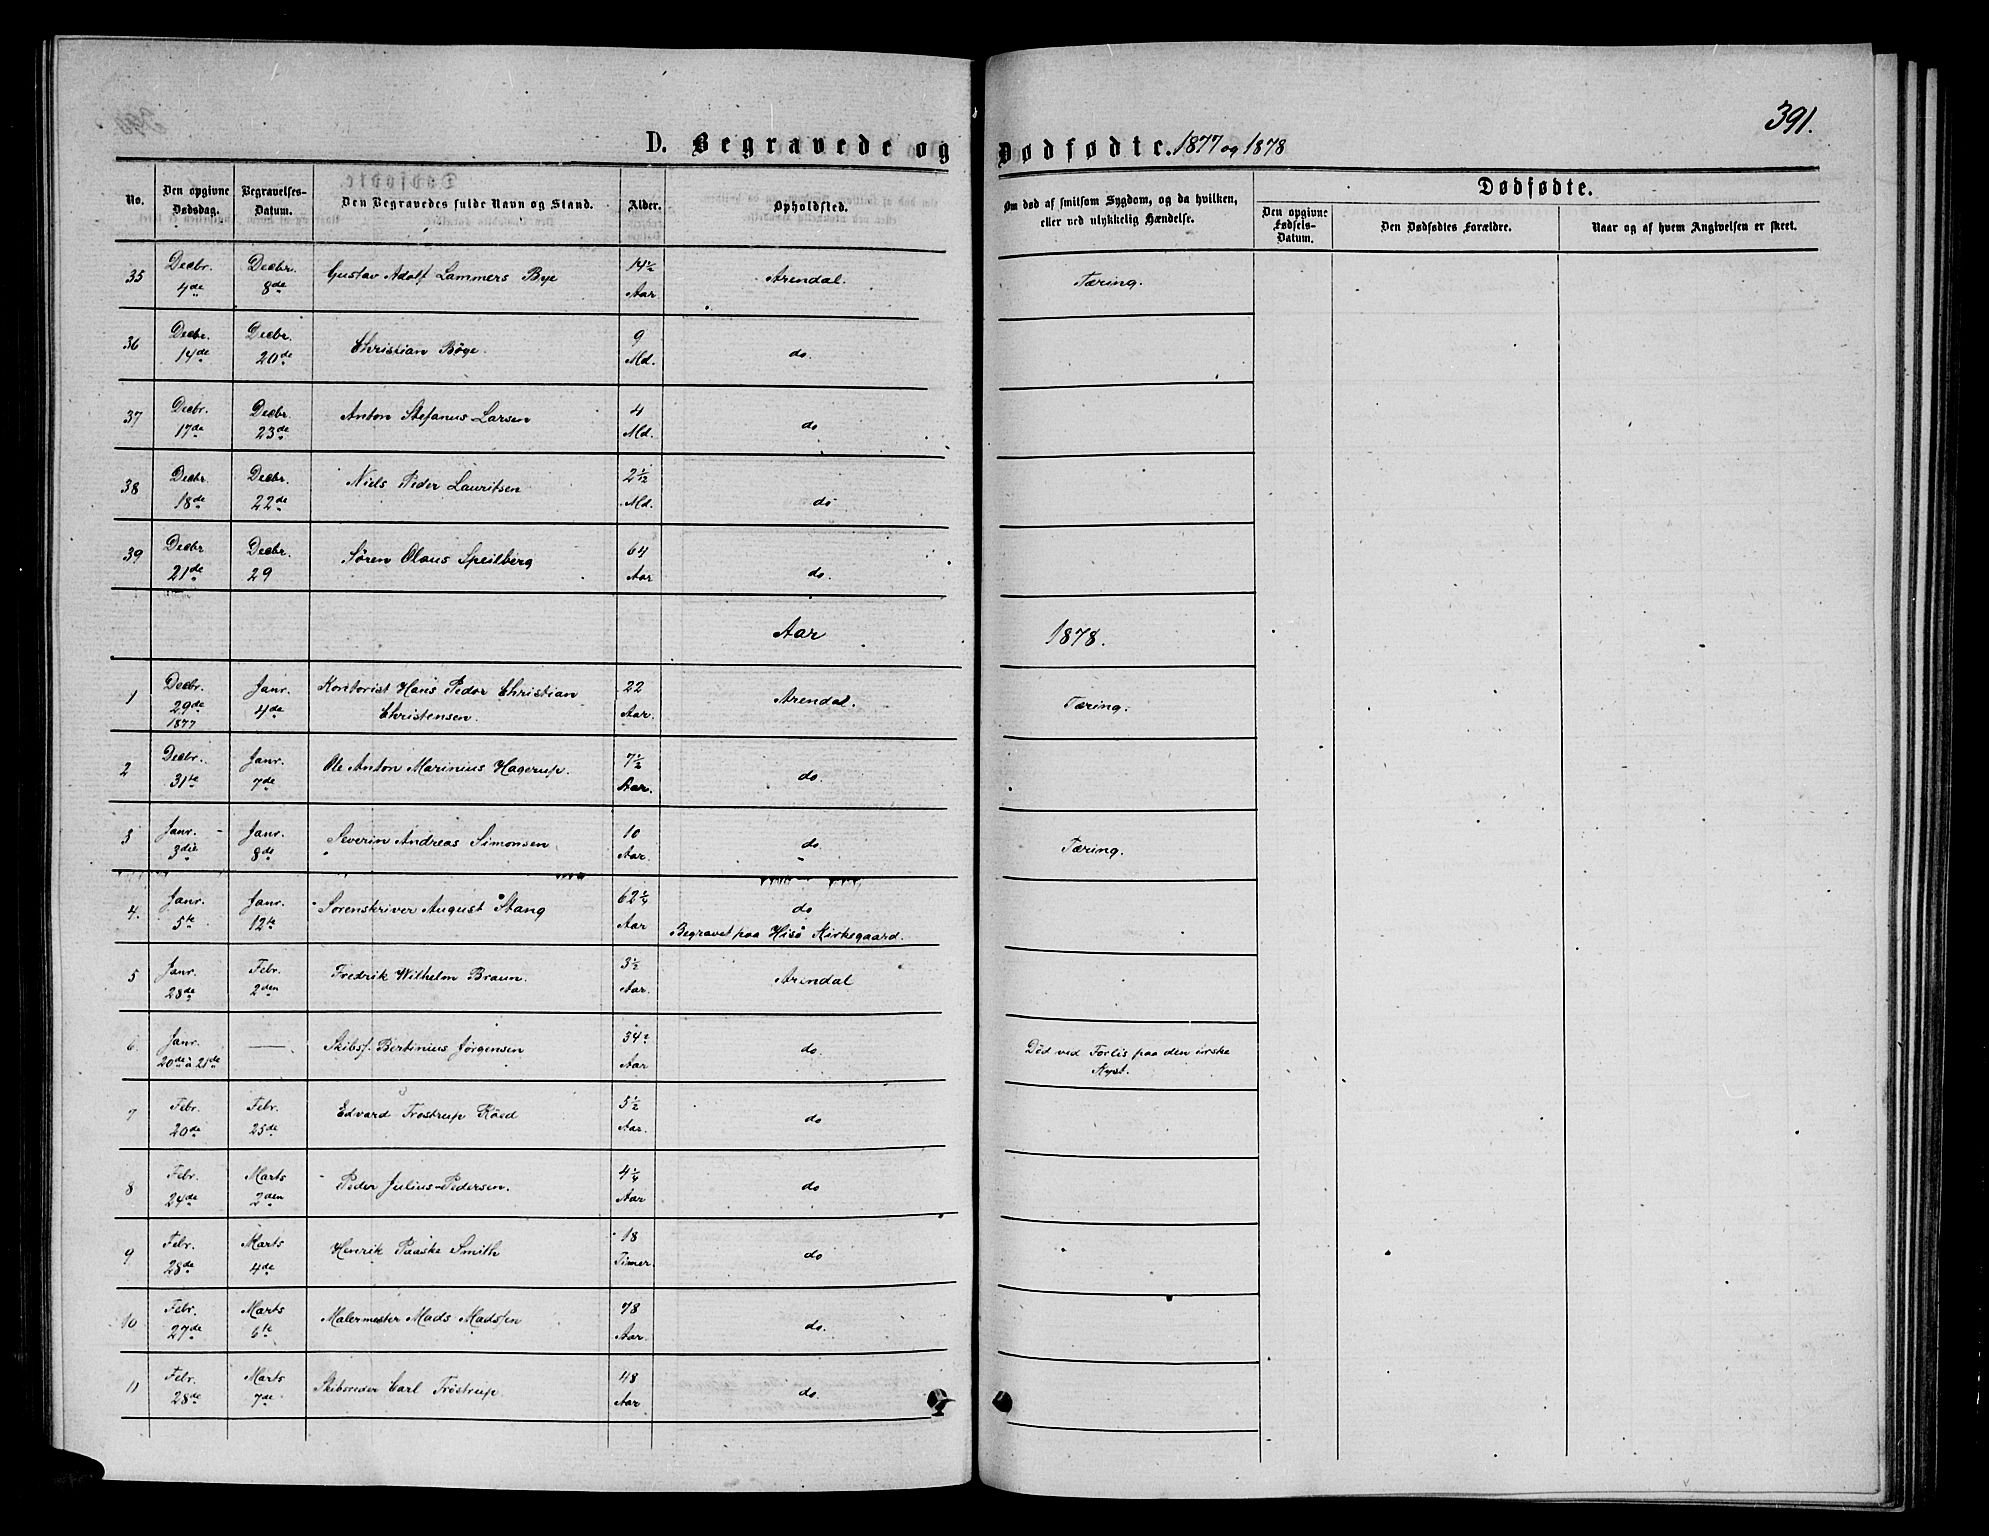 391.
D. Begravede og Dødfødte. 1877 og 1878
No.
Den opgivne Dødsdag.
Begravelses-Datum.
Den Begravedes fulde Navn og Stand.
Alder.
Opholdsted.
Om død af smitsom Sygdom, og da hvilken, eller ved ulykkelig Hændelse.
Dødfødte.
Den opgivne Fødsels-Datum.
Den Dødfødtes Forældre.
Naar og af hvem Angivelsen er skeet.
35 Decbr. 4de Decbr. 8de Gustav Adolf Lammers Bye 14½ Aar Arendal. Tæring.
36 Decbr. 14de Decbr. 20de Christian Böge. 9 Md. do.
37 Decbr. 17de Decbr. 23de Anton Stefanus Larsen 4 Md. do
38 Decbr. 18de Decbr. 22de Niels Peder Lauritsen Md. do
39 Decbr 21de Decbr. 29 Søren Olaus Speilberg 64 Aar do.
Aar 1878.
1 Decbr. 29de 1877 Janr. 4de Kontorist Hans Peder Christian Christensen. 22 Aar. Arendal. Tæring.
2 Decbr. 31te Janr. 7de Ole Anton Marinius Hagerup. 7½ Aar. do.
3 Janr. 3die Janr. 8de Severin Andreas Simonsen 10 Aar. do. Tæring.
4. Janr. 5te Janr. 12te Sorenskriver August Stang Aar do Begravet paa Hisö Kirkegaard.
5 Janr. 28de Febr. 2den Fredrik Wilhelm Braun. 3½ Aar. Arendal
6. Janr. 20de à 21de — Skibsf. Bertinius Jørgensen Aar do. Död ved Forlis paa den irske Kyst.
7 Febr. 20de Febr. 25de Edvard Trostrup Röed 5½ Aar. do
8 Febr. 24de Marts 2den Peder Julius Pedersen. 4¼ Aar do
9 Febr. 28de Marts 4de Henrik Paaske Smith 18 Timer. do
10 Febr. 27de Marts 6te Malermester Mads Madssen 78 Aar. do.
11 Febr. 28de Marts 7de Skibsreder Carl Tröstrup. 48 Aar. do.